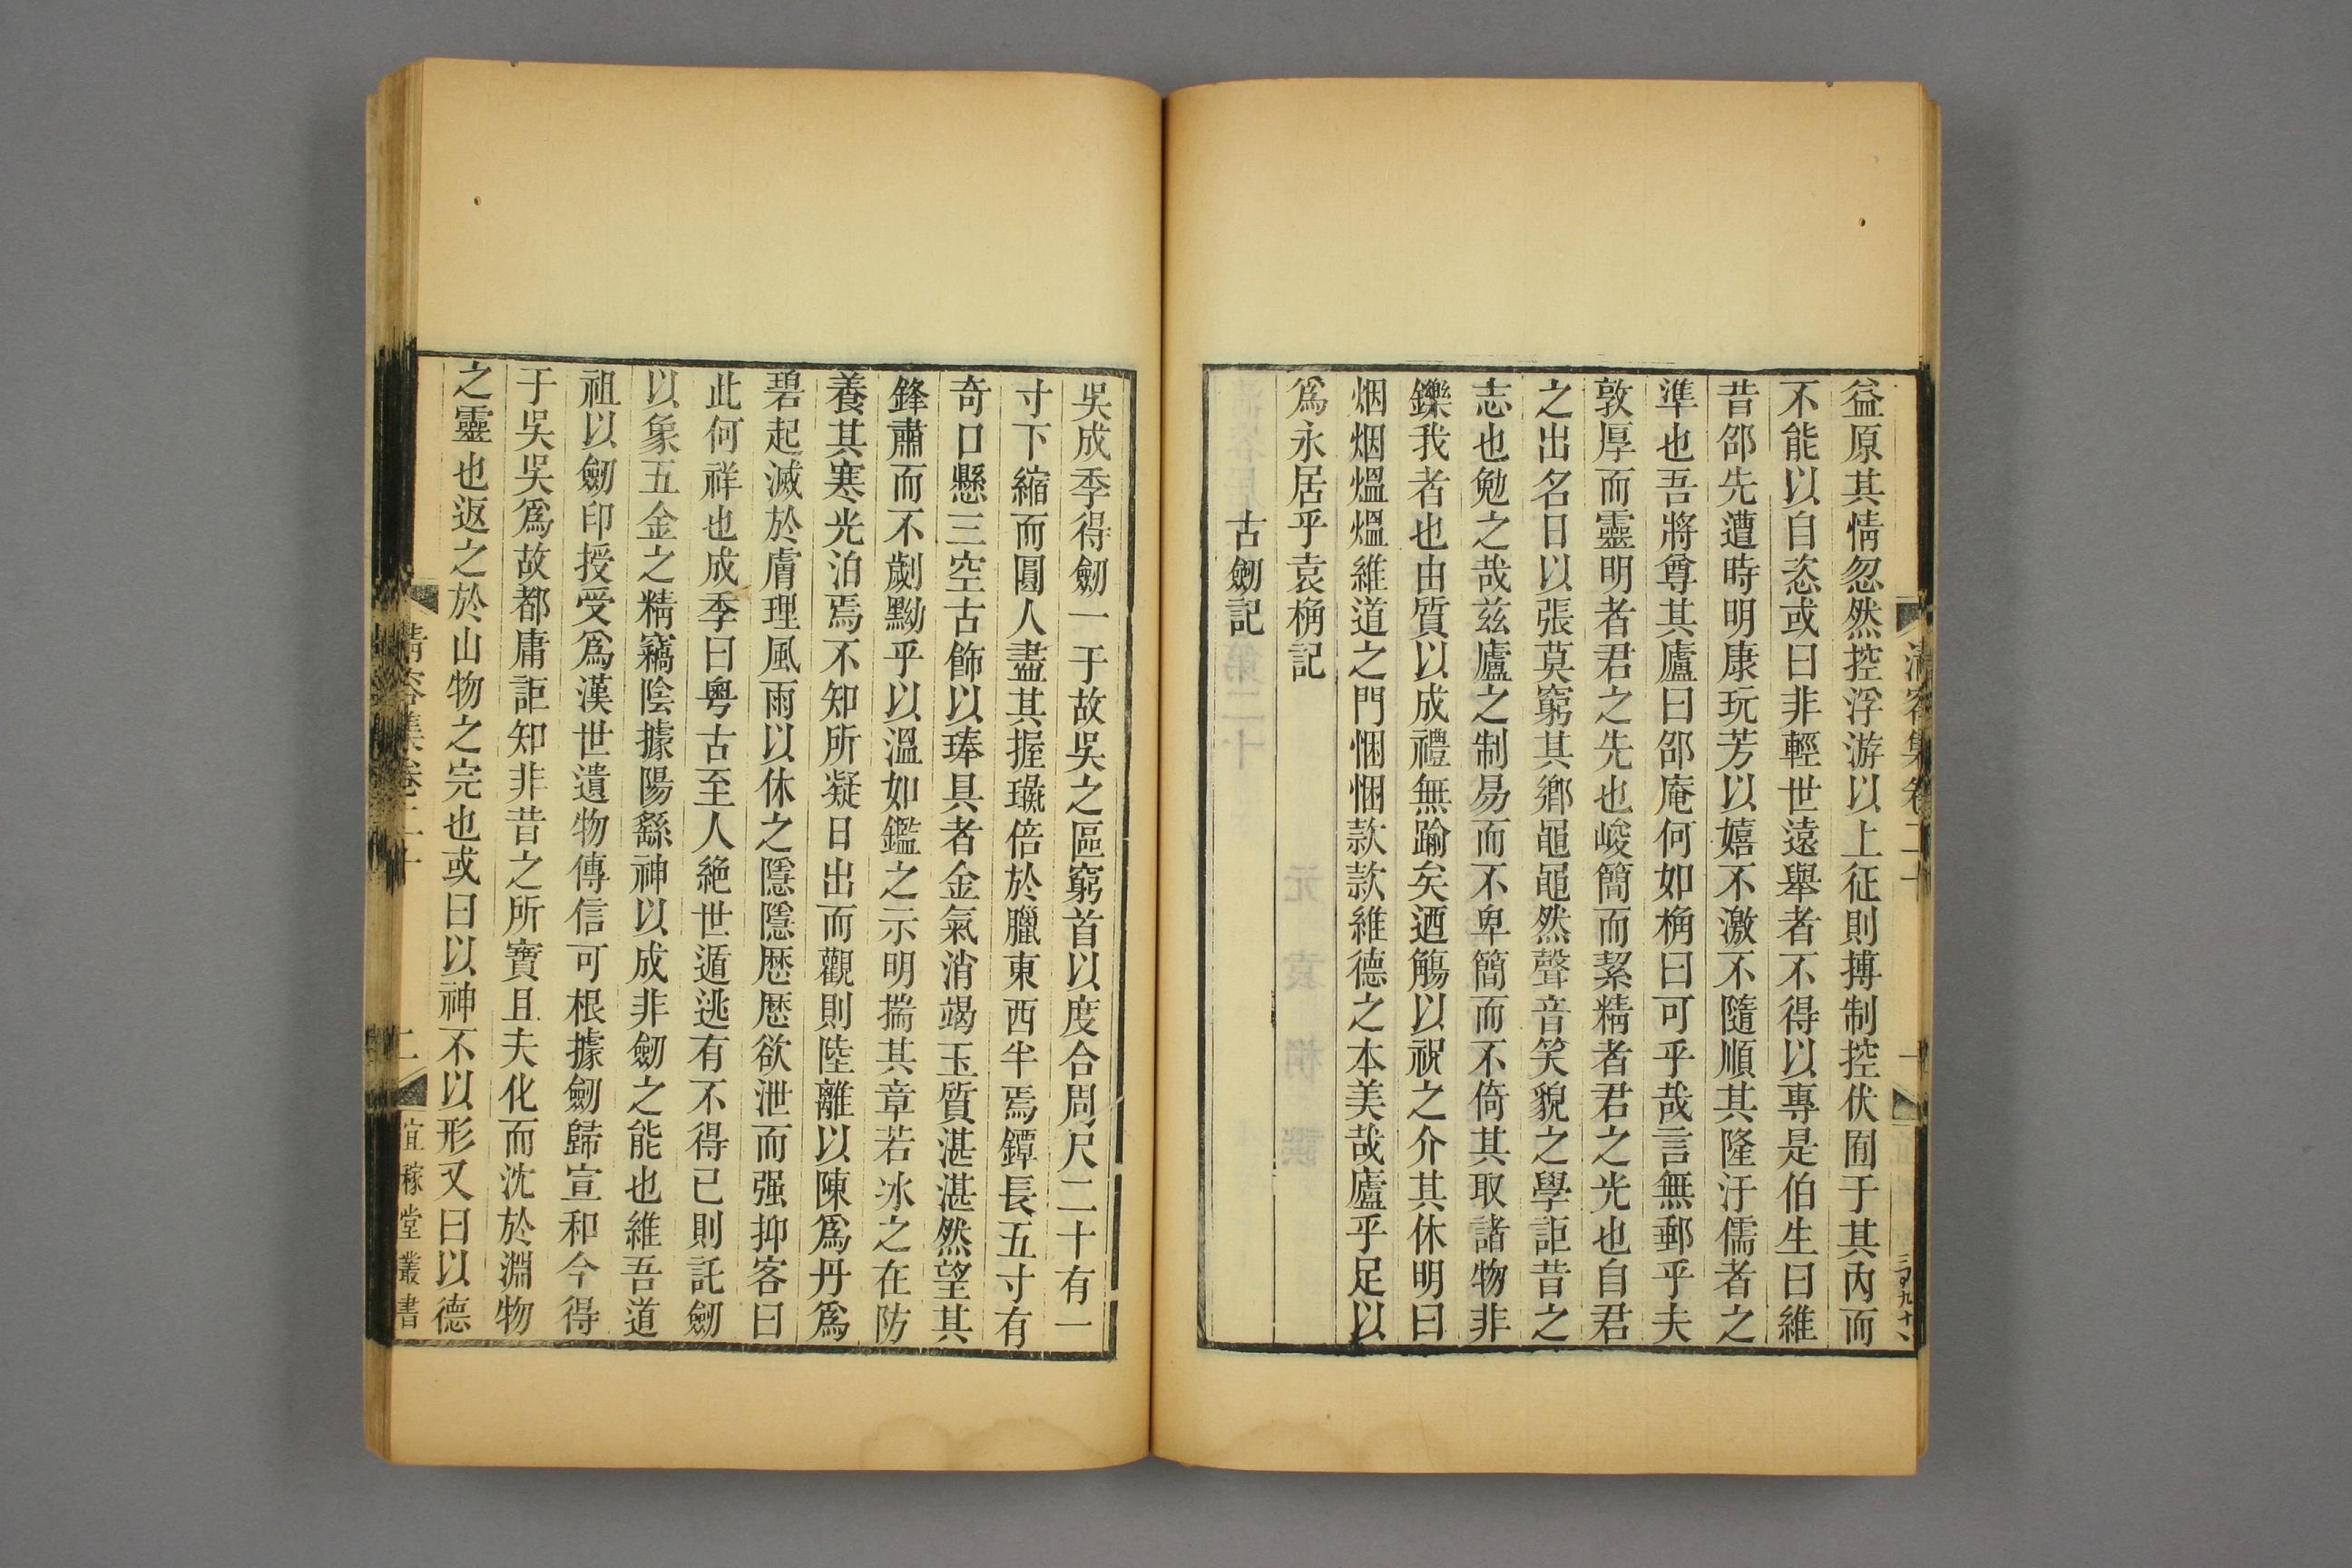 益原其情忽然控浮游以上征則搏制控伏囿于其內而
不能以自恣或曰非輕世遠舉者不得以專是伯生曰維
昔邵先遭時明康玩芳以嬉不激不隨順其隆汙儒者之
準也吾將尊其廬曰邵庵何如桷曰可乎哉言無郵乎夫
敦厚而靈明者君之先也峻簡而絜精者君之光也自君
之出名日以張莫窮其鄉黽黽然聲音笑貌之學詎昔之
志也勉之哉茲廬之制易而不卑簡而不倚其取諸物非
鑠我者也由質以成禮無踰矣迺觴以祝之介其休明曰
烟烟熅熅維道之門悃悃款款維德之本美哉廬乎足以
為永居乎袁桷記
古劒記
吳成季得劒一于故吳之區窮首以度合周尺二十有一
寸下縮而圓人盡其握璏倍於臘東西半焉鐔長五寸有
奇口懸三空古飾以琫具者金氣消竭玉質湛湛然望其
鋒肅而不劌黝乎以溫如鑑之示明揣其章若冰之在防
養其寒光泊焉不知所凝日出而觀則陸離以陳為丹為
碧起滅於膚理風雨以休之隱隱歷歷欲泄而强抑客曰
此何祥也成季曰粵古至人絶世遁逃有不得已則託劒
以象五金之精竊陰據陽繇神以成非劒之能也維吾道
祖以劒印授受為漢世遺物傳信可根據劒歸宣和今得
于吳吳為故都庸詎知非昔之所寶且夫化而沈於淵物
之靈也返之於山物之完也或曰以神不以形又曰以德
清容集卷二十
二
宜稼堂叢書